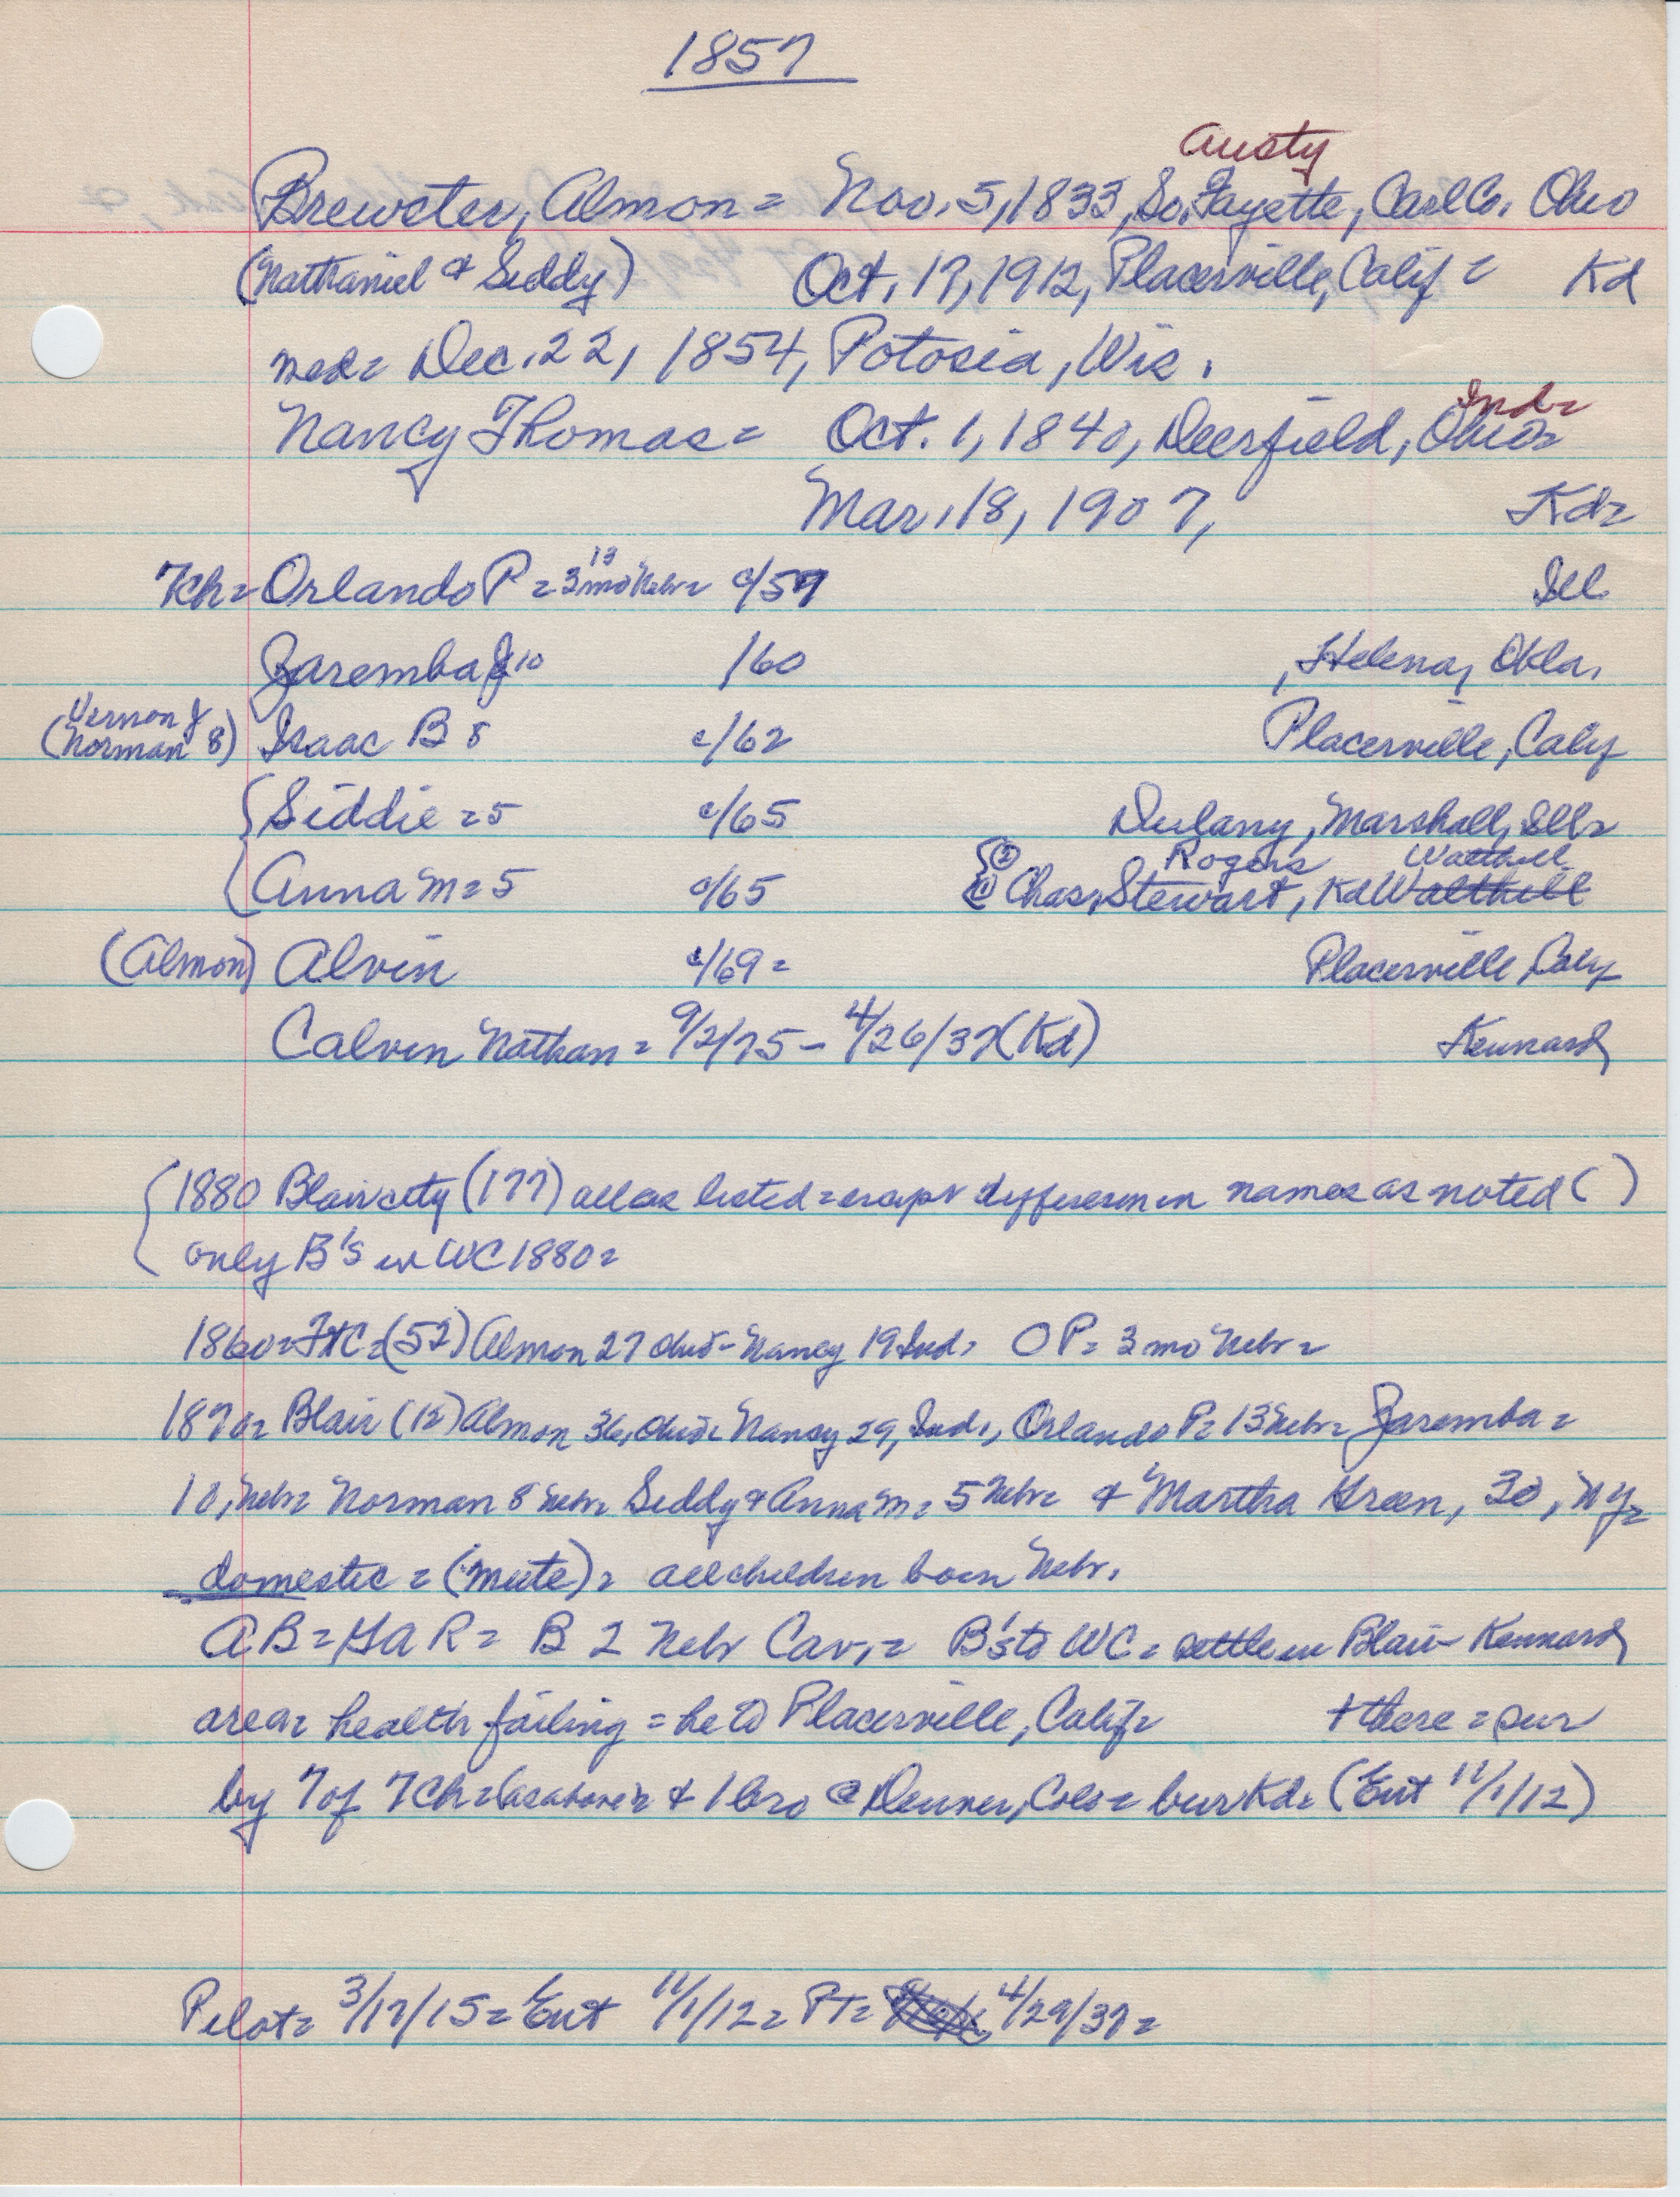 1857
Austy
Brewster, Almon = Nov. 5, 1833, So. Fayette, Co. Ohio
(Nathaniel & Siddy) Oct. 19, 1912, Placerville, Calif = Kd
med = Dec. 22, 1854, Potosia, Wis.
Ind =
Nancy Thomas = Oct. 1, 1840, Deerfield, Ohio =
Mar. 18, 1907, Kd =
13
7ch = Orlando P = 3 mo Nebr = c/59 Ill
Zaremba J 10 /60 , Helena, Okla.
Vernon J
(Norman 8) Isaac B 8 c/62 Placerville, Calif
Siddie = 5 c/65 Dulany, Marshall, Ill =
② Rogers Walthill
Anna M = 5 c/65 ① Chas. Stewart, Kd Walthill
(Almon) Alvin c/69 = Placerville, Calif
Calvin Nathan = 9/2/75 - 4/26/37 (Kd) Kennard
1880 Blair city (177) all as listed = except difference in names as noted ( )
only B's in WC 1880 =
1860 = FtC = (52) Almon 27 Ohio - Nancy 19 Ind. OP = 3 mo Nebr =
1870 = Blair (12) Almon 36, Ohio = Nancy 29, Ind., Orlando P = 13 Nebr = Zaremba =
10, Nebr = Norman 8 Nebr = Siddy & Anna M = 5 Nebr = & Martha Green, 30, NY =
domestic = (mute) = all children born Nebr.
AB = GAR = B 2 Nebr Cav. = B's to WC = settle in Blair - Kennard
area = health failing = he to Placerville, Calif = + there = sur
by 7 of 7 ch = (as above) = & 1 bro @ Denver, Colo = bur Kd = (Ent 11/1/12)
Pilot = 3/17/15 = Ent 11/1/12 = PT = 4/29/37 =